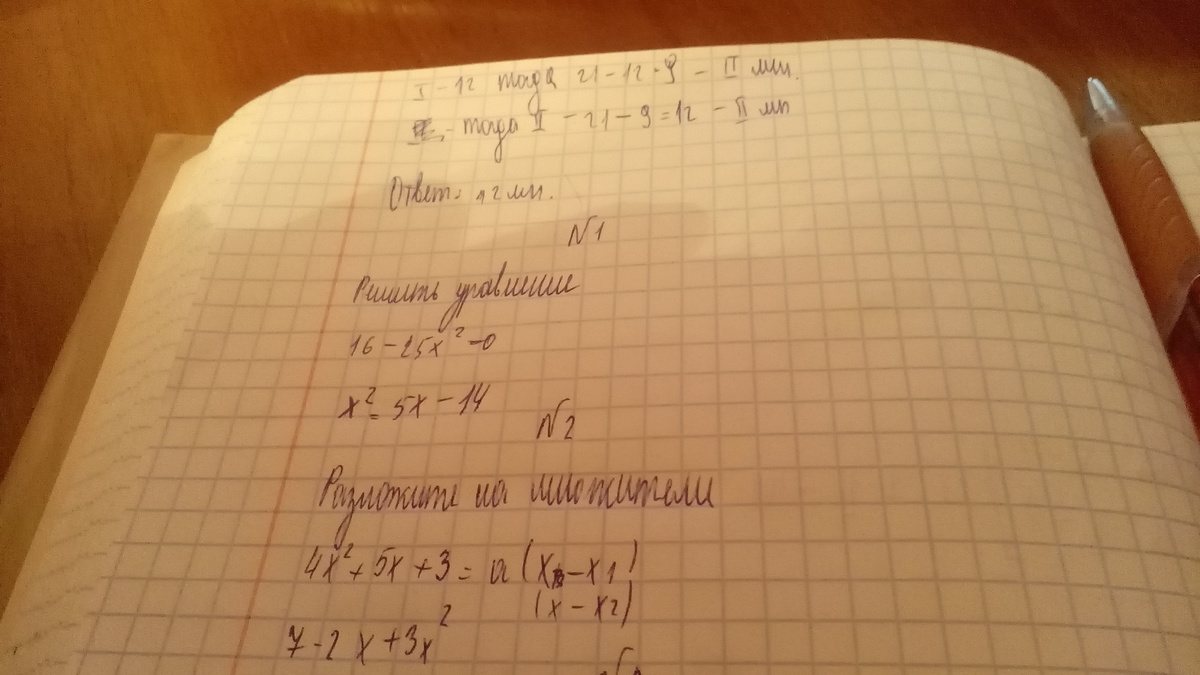 I - 12 тогда 21 - 12 · 9 - II мин.
- тогда II - 21 - 9 = 12 - II мп
Ответ: 12 мин.
N1
Решить уравнение
16 - 25x² = 0
x² = 5x - 14
N2
Разложите на множители
4x² + 5x + 3 = a (x - x1)
(x - x2)
7 - 2x + 3x²